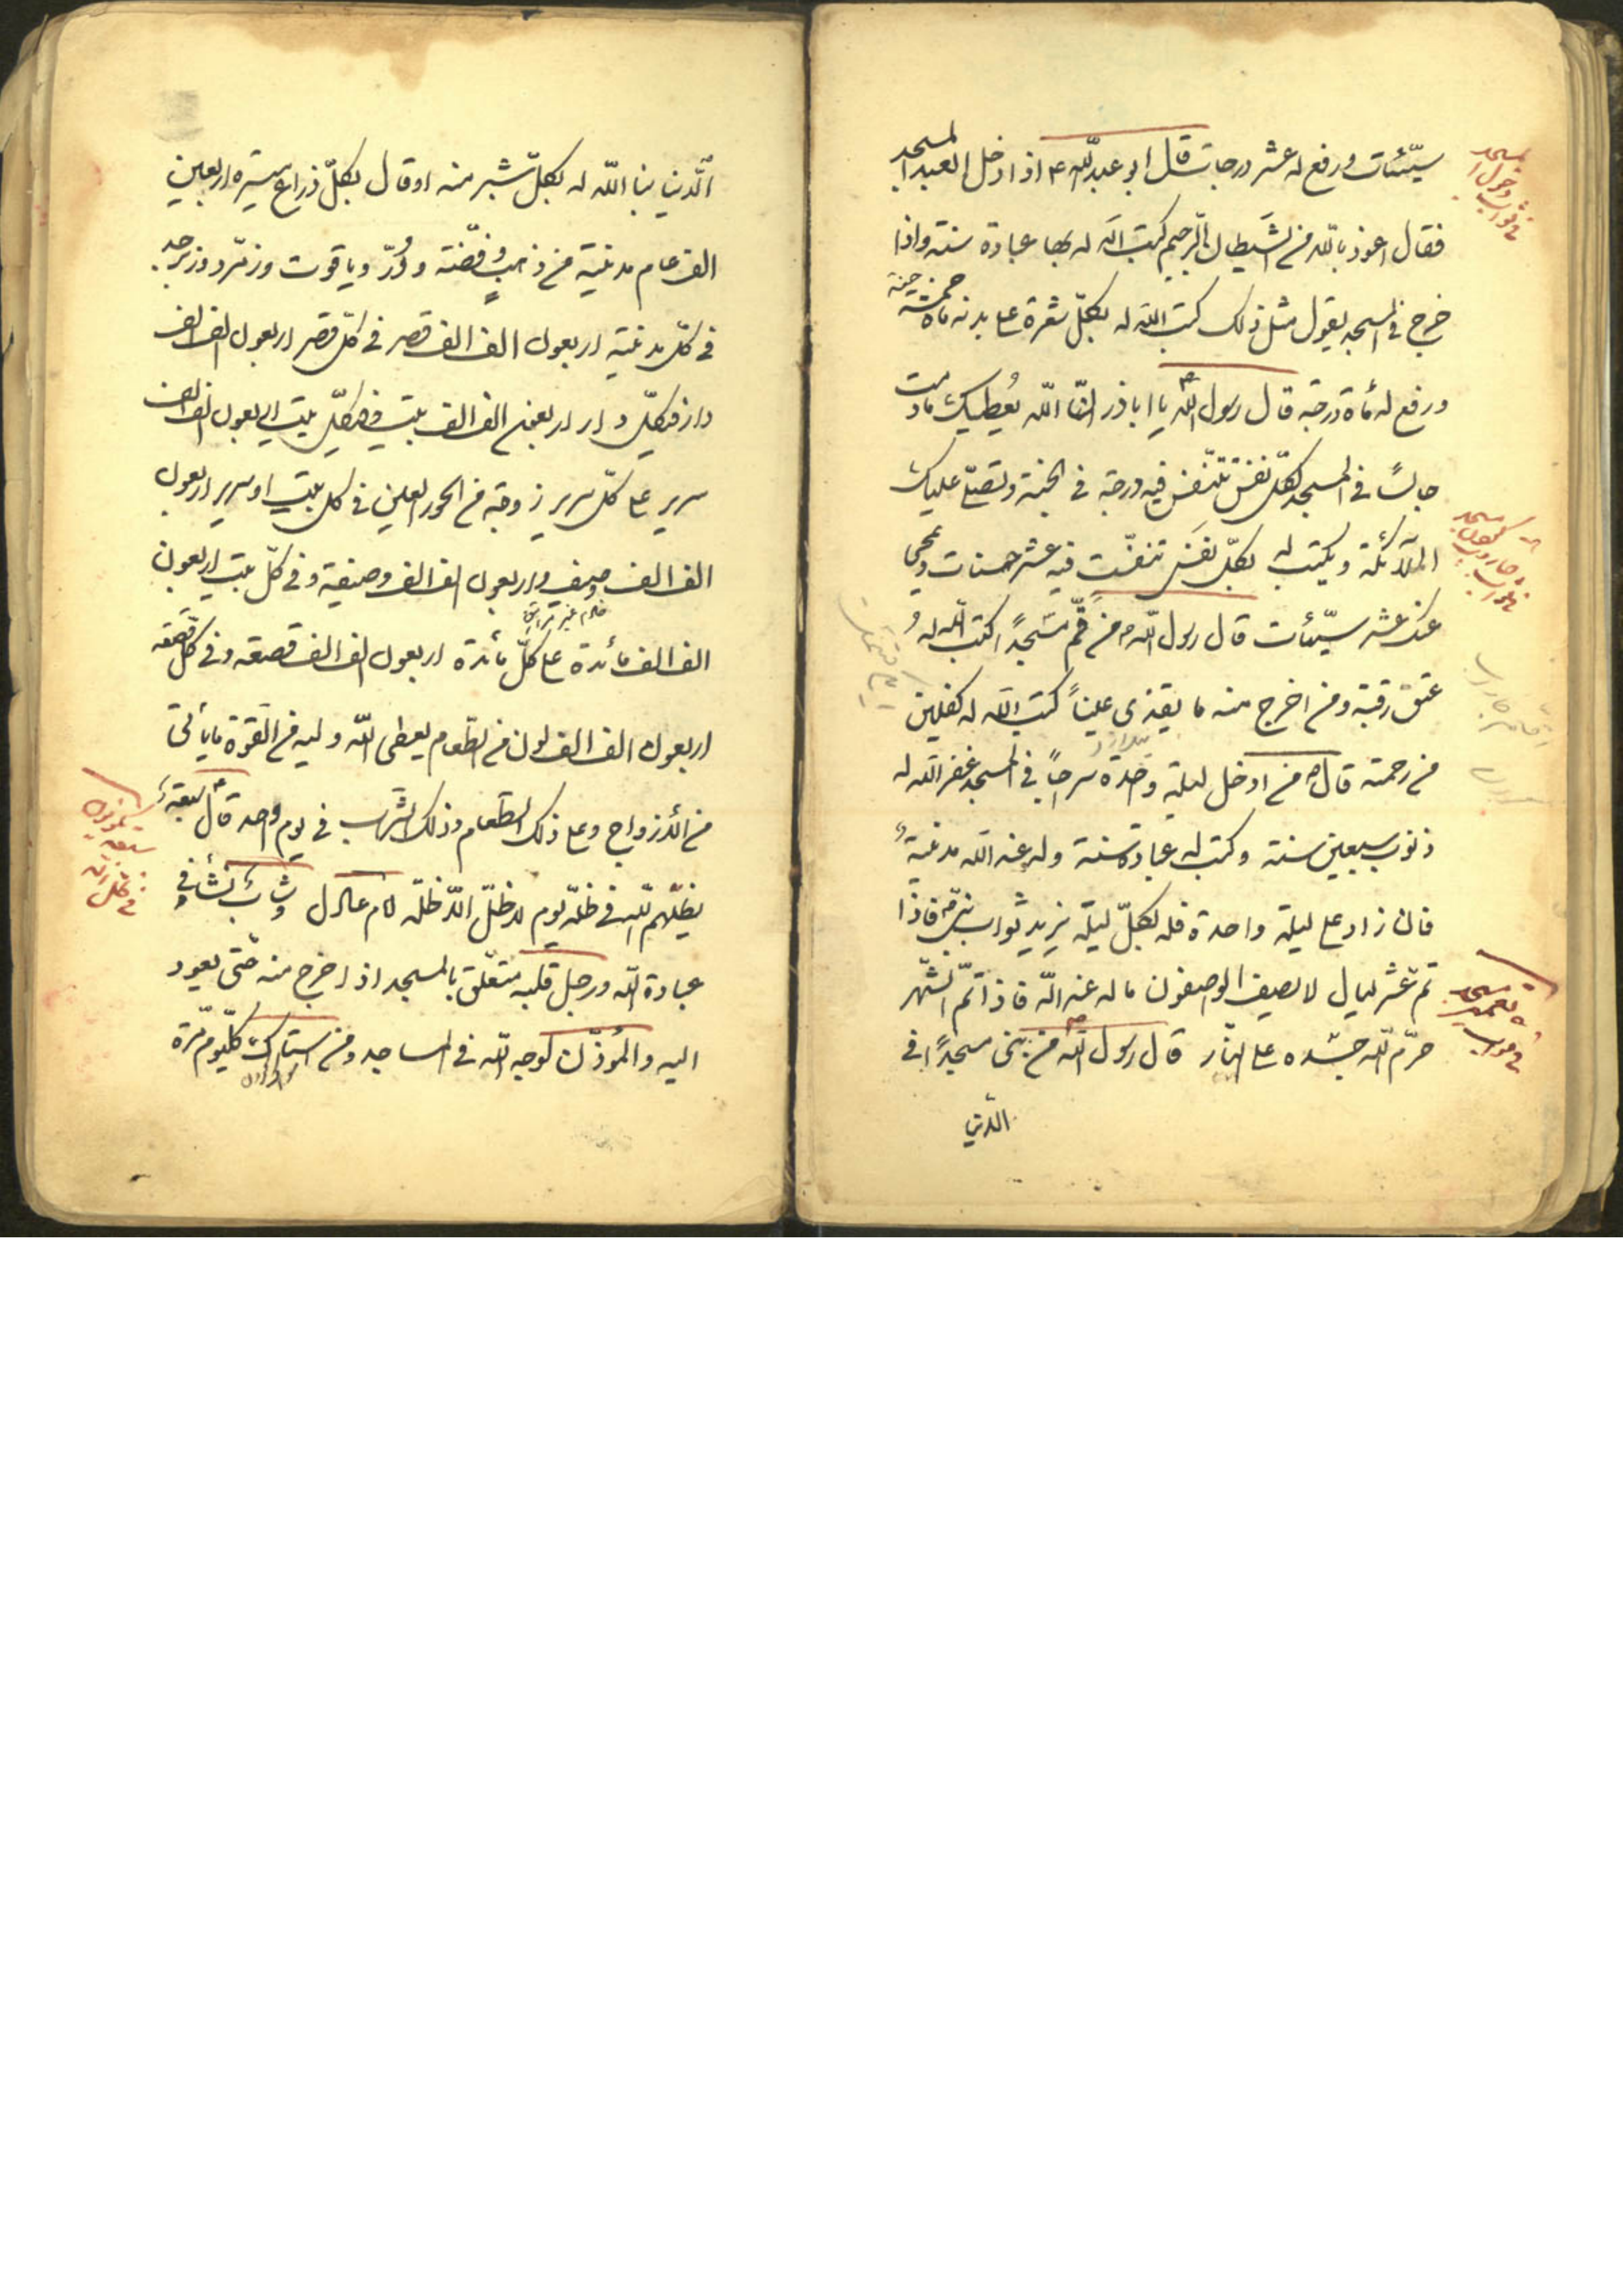 سيّئات ورفع له عشر درجات قال ابو عبد اللّه ع اذا دخل العبد المسجد
فقال اعوذ باللّه من الشيطان الرجيم كتب اللّه له بها عبادة سنة واذا
خرج من المسجد يقول مثل ذلك كتب اللّه له بكلّ شعرة على بدنه مأة حسنة
ورفع له مأة درجة قال رسول اللّه ص يا اباذر انّ اللّه يُعطيك مادمت
جالسًا في المسجد بكلّ نفس تتنفّس فيه درجة في الجنة وتصلّى عليك
الملآئكة ويكتب له بكلّ نفَس تنفّست فيه عشر حسنات ومحى
عنك عشر سيّئات قال رسول اللّه ص من قمّ مسجدًا كتب اللّه له
عتق رقبة ومن اخرج منه ما يقذى عينًا كتب اللّه له كفلين
من رحمته قال ص من ادخل ليلة واحدة سراجًا في المسجد غفر اللّه له
ذنوب سبعين سنة وكتب له عبادة سنة وله عند اللّه مدينة
فان زاد على ليلة واحدة فله بكلّ ليلة يزيد ثواب نبىّ فاذا
تمّ عشر ليال لا يصف الواصفون ما له عند اللّه فاذا تمّ الشّهر
حرّم اللّه جسده على النّار قال رسول اللّه ص من بنى مسجدًا في
الدّنيا
الدّنيا بنا اللّه له بكلّ شبر منه او قال بكلّ ذراع مسيرة اربعين
الف عام مدينة من ذهب وفضّة ودُرّ وياقوت وزمرّد وزبرجد
في كلّ مدينة اربعون الف الف قصر في كلّ قصر اربعون الف الف
دار في كلّ دار اربعون الف الف بيت في كلّ بيت اربعون الف الف
سرير على كلّ سرير زوجة من الحور العين في كل بيت او سرير اربعون
الف الف وصيف واربعون الف الف وصيفة وفي كلّ بيت اربعون
الف الف مأئدة على كلّ مأئدة اربعون الف الف قصعة وفي كلّ قصعة
اربعون الف الف لون من الطّعام يعطى اللّه وليه من القوّة ما يأتى
من الازواج وعلى ذلك الطّعام وذلك الشّراب في يوم واحد قال ع سبعة
يظلّهم اللّه في ظلّه يوم لا ظلّ الّا ظلّه امام عادل وشابّ نشأ في
عبادة اللّه ورجل قلبه متعلّق بالمسجد اذا خرج منه حتّى يعود
اليه والمؤذّن لوجه اللّه في المساجد ومن استاك كلّ يوم مرّة